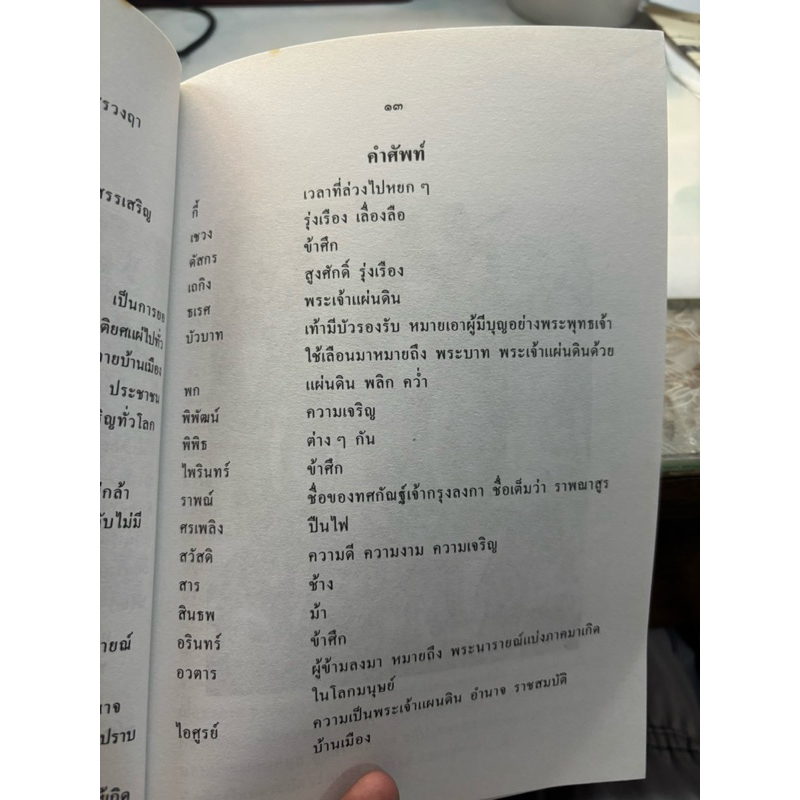 รวงฤา
สรรเสริญ
เป็นการยอ
ติยศแผ่ไปทั่ว
ายบ้านเมือง
ประชาชน
ริญทั่วโลก
กล้า
ับไม่มี
ายณ์
าจ
ปราบ
เกิด
๑๓
คำศัพท์
กี้ เวลาที่ล่วงไปหยก ๆ
เชวง รุ่งเรือง เลื่องลือ
ดัสกร ข้าศึก
เถกิง สูงศักดิ์ รุ่งเรือง
ธเรศ พระเจ้าแผ่นดิน
บัวบาท เท้ามีบัวรองรับ หมายเอาผู้มีบุญอย่างพระพุทธเจ้า
ใช้เลือนมาหมายถึง พระบาท พระเจ้าแผ่นดินด้วย
พก แผ่นดิน พลิก คว่ำ
พิพัฒน์ ความเจริญ
พิพิธ ต่าง ๆ กัน
ไพรินทร์ ข้าศึก
ราพณ์ ชื่อของทศกัณฐ์เจ้ากรุงลงกา ชื่อเต็มว่า ราพณาสูร
ศรเพลิง ปืนไฟ
สวัสดิ ความดี ความงาม ความเจริญ
สาร ช้าง
สินธพ ม้า
อรินทร์ ข้าศึก
อวตาร ผู้ข้ามลงมา หมายถึง พระนารายณ์แบ่งภาคมาเกิด
ในโลกมนุษย์
ไอศูรย์ ความเป็นพระเจ้าแผนดิน อำนาจ ราชสมบัติ
บ้านเมือง